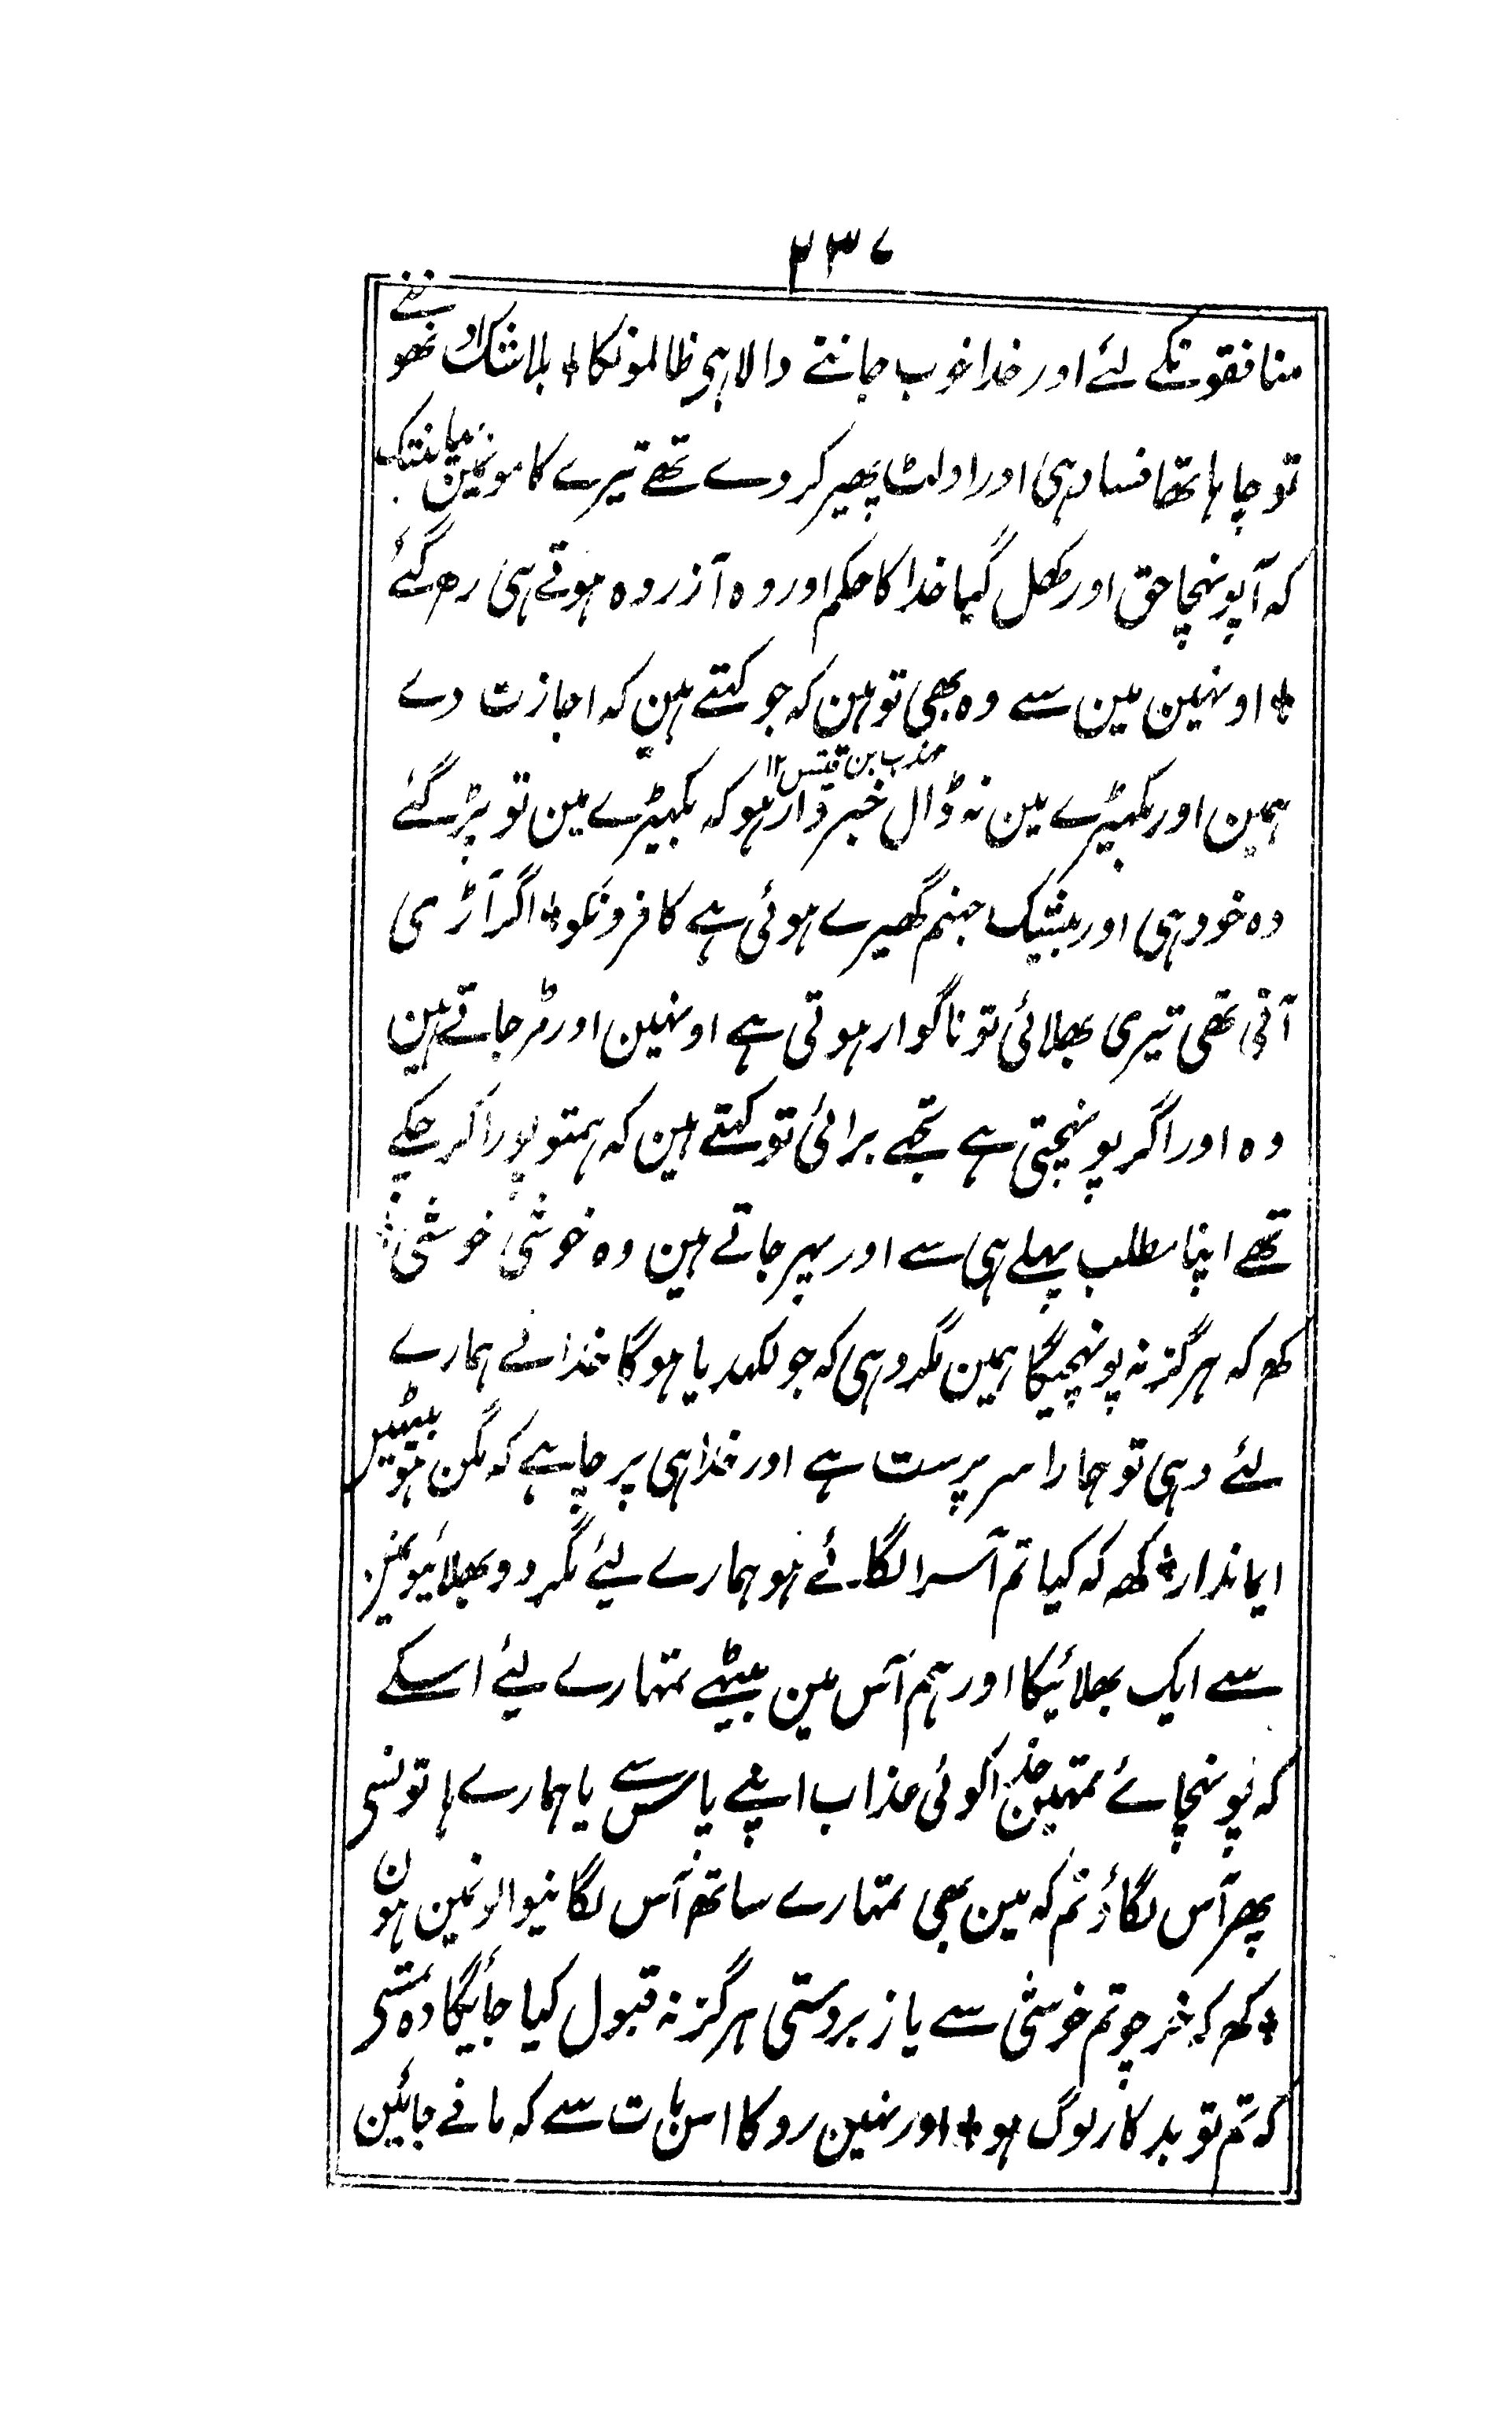 ۲۳۷
منافقونکے لئے اور خدا خوب جاننے والا ہی ظالمونکا * بلا شک اونھونے
تو چاہا تھا فساد ہی اور اولٹ پھیر کر دے تھے تیرے کامونمین یہانتک
کہ آپونہچا حق اور کھل گیا خدا کا حکم اور وہ آزردہ ہوتے ہی رہ گئے
* اونہین مین سے وہ بھی تو ہین کہ جو کہتے ہین کہ اجازت دے
ہمین اور بکہیڑے مین نہ ڈال خبردار ہو کہ بکہیڑے مین تو پڑ گئے
وہ خود ہی اور بیشک جہنم گھیرے ہوئی ہے کافرونکو * اگر آڑی
آئی تھی تیری بھلائی تو ناگوار ہوتی ہے اونہین اور مڑ جاتے ہین
وہ اور اگر پونہچتی ہے تجھے برائی تو کہتے ہین کہ ہمتو پورا کر چکے
تھے اپنا مطلب پہلے ہی سے اور پہر جاتے ہین وہ خوشی خوشی *
کھ کہ ہرگز نہ پونہچیگا ہمین مگر وہی کہ جو لکہدیا ہوگا خدا نے ہمارے
لئے وہی تو ہمارا سرپرست ہے اور خدا ہی پر چاہے کہ مگن ہو بیٹہین
ایماندار * کھ کہ کیا تم آسرا لگائے ہو ہمارے لئے مگر دو بھلائیونمین
سے ایک بھلائیکا اور ہم آس مین بیٹہے تمہارے لئے اسکے
کہ پونہچائے تمہین خدا کوئی عذاب اپنے پاس سے یا ہمارے ہاتونسی
پھر آس لگاؤ تم کہ مین بھی تمہارے ساتھ آس لگانیوالونمین ہون
* کھ کہ خرچو تم خوشی سے یا زبردستی ہرگز نہ قبول کیا جائیگا وہ تمسی
کہ تم تو بدکار لوگ ہو * اور نہین روکا اس بات سے کہ مانے جائین